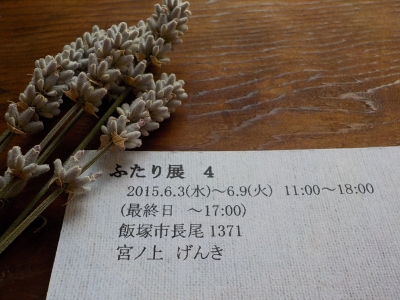 ふたり展 4
2015.6.3(水)～6.9(火) 11:00～18:00
(最終日 ～17:00)
飯塚市長尾1371
宮ノ上 げんき